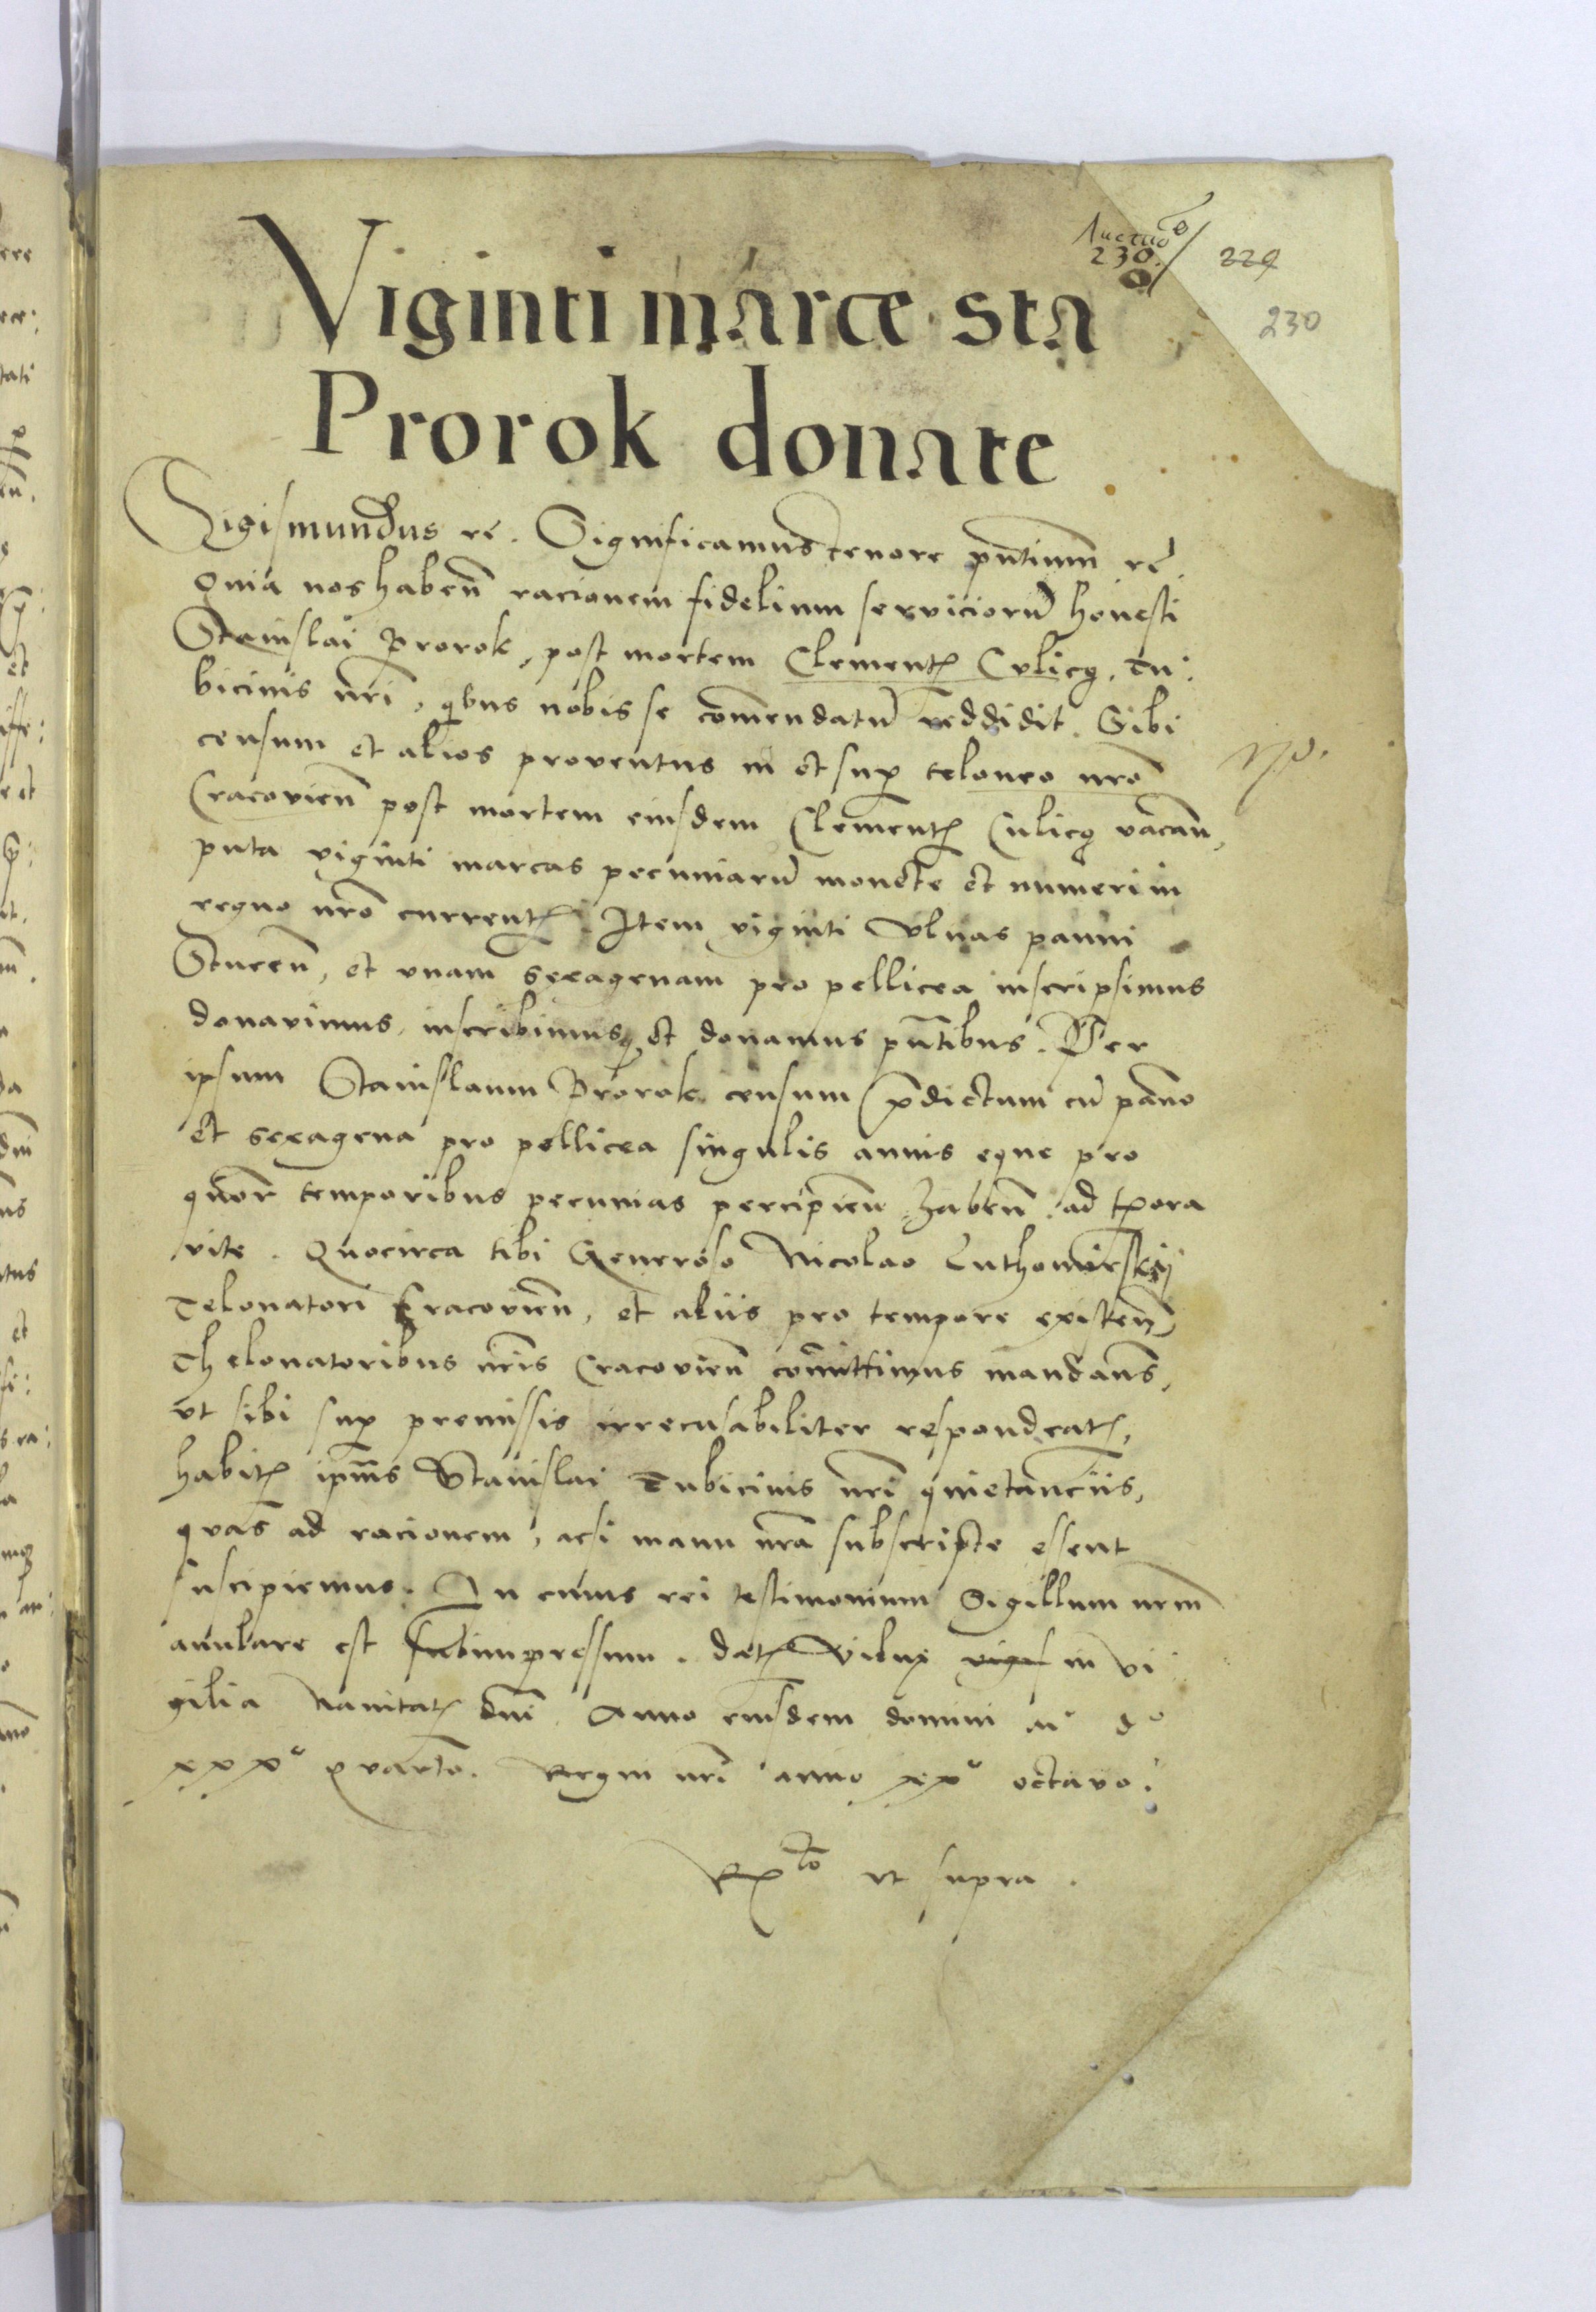 230.
229
230
Viginti marce sta
Prorok donate
Sigismundus rē. Significamus tenore pn̄tium rē.
Quia nos haben̄ racionem fidelium servicioru̅ honesti
Stanislai Prorok, post mortem Clementꝭ Culicꝫ, tu:
bicinis nr̄i, qibus nobis se com̄endatu̅ reddidit. Sibi
censum et alios proventus in et suꝑ teloneo nr̄o
Cracovien̄ post mortem eiusdem Clementꝭ Culicꝫ vacan̄,
puta viginti marcas pecuniaru̅ monete et numeri in
regno nr̄o currentꝭ. Item viginti Ulnas panni
Stucen̄, et unam sexagenam pro pellicea inscripsimus
donavimus, inscribimusqꝫ et donamus pn̄tibus. Per
ipsum Stanislaum Prorok censum p̄dictum cu̅ pan̄o
et sexagena pro pellicea singulis annis eque pro
quor temporibus pecunias percipien̄ haben̄. ad tꝑora
vite. Quocirca tibi Generoso Nicolao Luthomirskij
Telonatori Cracovien̄, et aliis pro tempore existen̄,
Thelonatoribus nr̄is Cracovien̄ com̄ittimus mandan̄s,
ut sibi suꝑ premissis irrecusabiliter respondeatꝭ,
habitꝭ ipīus Stanislai Tubicinis nr̄i quietanciis,
quas ad racionem, acsi manu nr̄a subscripte essent
suscipiemus. In cuius rei testimonium Sigillum nr̄m
anulare est subimpressum. Datꝭ Vilnę in vi
gilia Nativitatꝭ dn̄i. Anno eiusdem domini mᵒ dᵒ
xxxᵒ quarto. Regni nr̄i anno xxᵒ octavo.
Rꝭto ut supra.